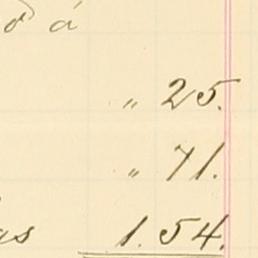 á
" 25.
" 71.
as 1.54.